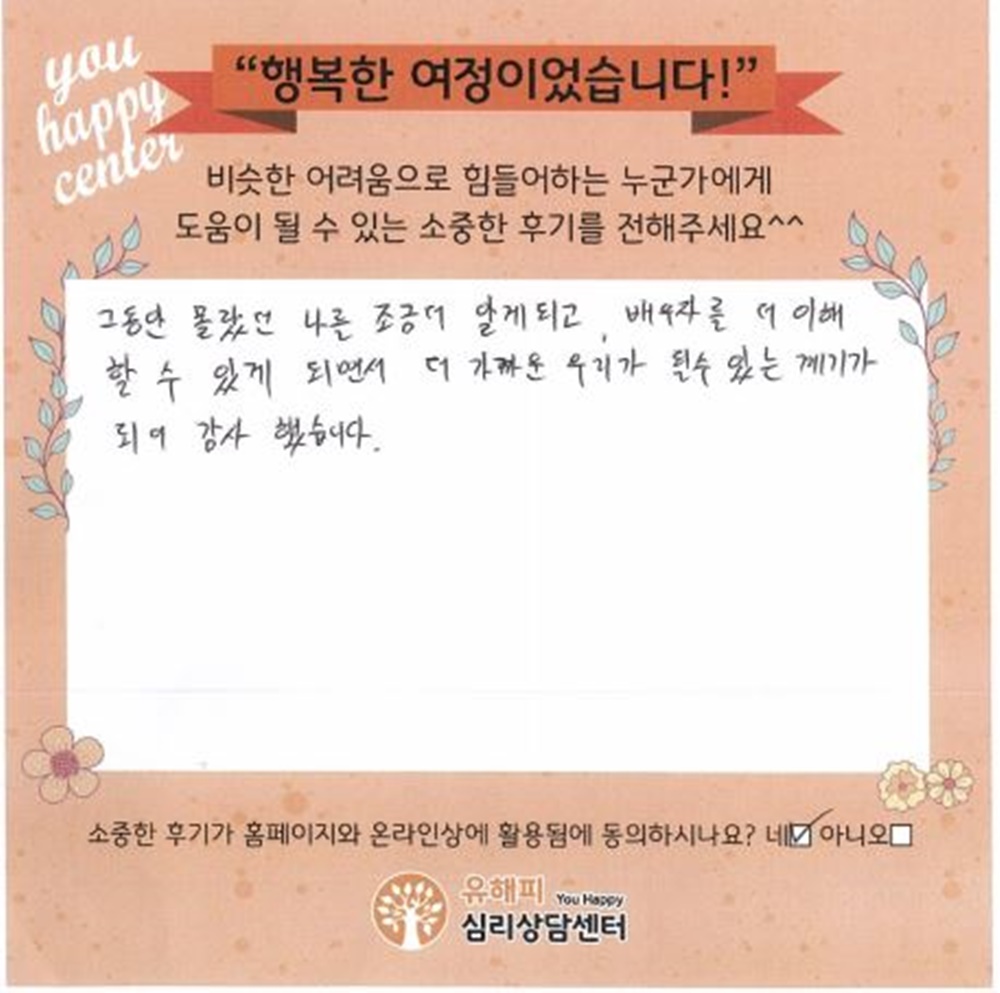 you
happy
center
“행복한 여정이었습니다!”
비슷한 어려움으로 힘들어하는 누군가에게
도움이 될 수 있는 소중한 후기를 전해주세요^^
그동안 몰랐던 나를 조금더 알게되고, 배우자를 더 이해
할 수 있게 되면서 더 가까운 우리가 될수 있는 계기가
되어 감사 했습니다.
소중한 후기가 홈페이지와 온라인상에 활용됨에 동의하시나요? 네☑ 아니오☐
유해피 You Happy
심리상담센터